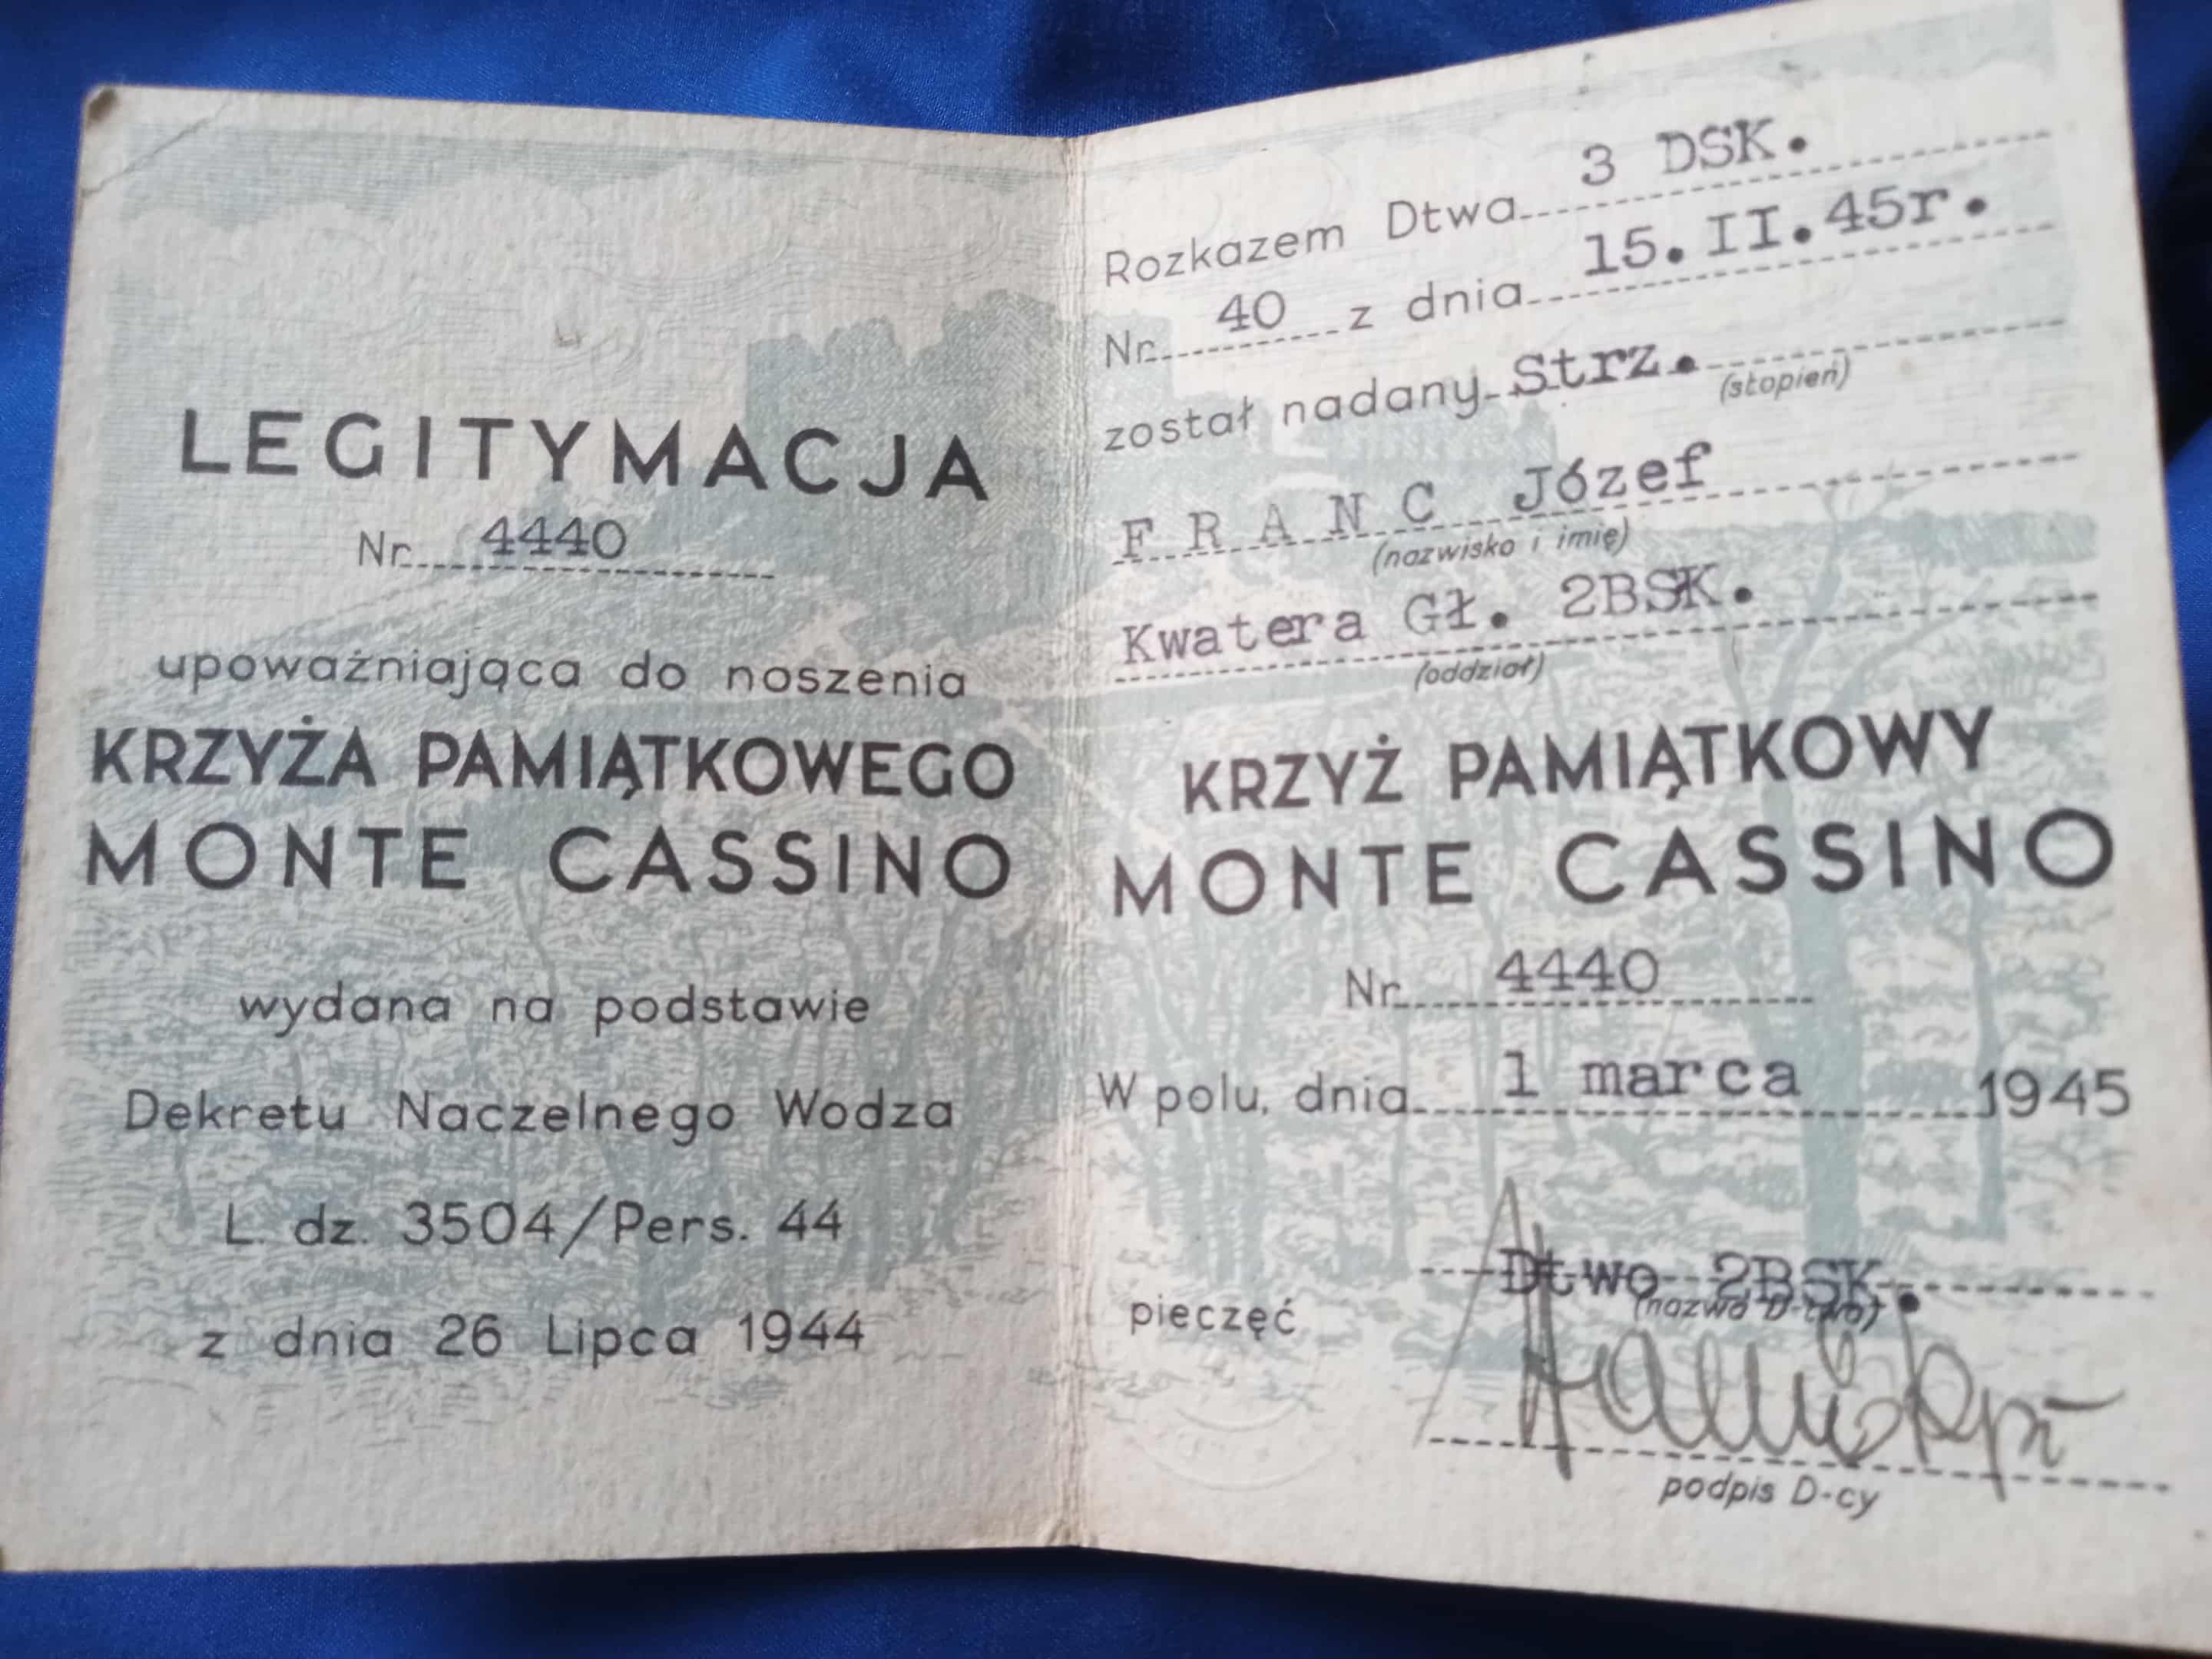 LEGITYMACJA
Nr. 4440
upoważniająca do noszenia
KRZYŻA PAMIĄTKOWEGO
MONTE CASSINO
wydana na podstawie
Dekretu Naczelnego Wodza
L. dz. 3504/Pers. 44
z dnia 26 Lipca 1944
Rozkazem Dtwa 3 DSK.
Nr. 40 z dnia 15.II.45r.
został nadany Strz.
(stopień)
FRANC Józef
(nazwisko i imię)
Kwatera Gł. 2BSK.
(oddział)
KRZYŻ PAMIĄTKOWY
MONTE CASSINO
Nr. 4440
W polu, dnia 1 marca 1945
Dtwo 2BSK.
(nazwa D-twa)
pieczęć
podpis D-cy